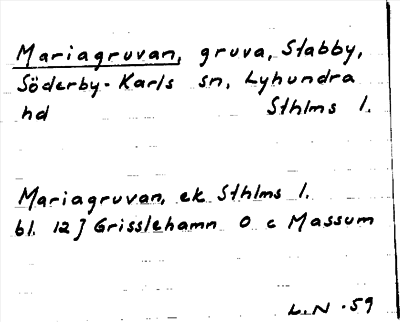 Mariagruvan, gruva, Stabby,
Söderby-Karls sn, Lyhundra
hd Sthlms l.
Mariagruvan, ek Sthlms l.
bl. 12] Grisslehamn O c Massum
L.N -59